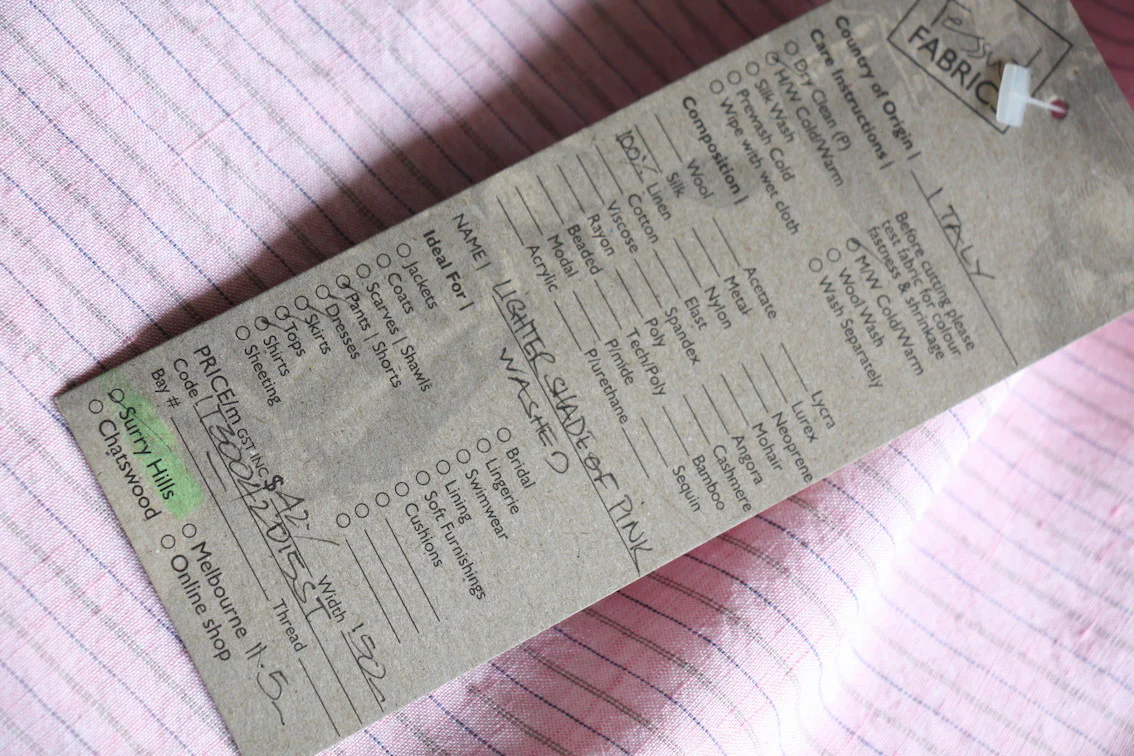 Tessuti
FABRICS
Country of Origin | ITALY
Care Instructions |
Dry Clean (P)
H/W Cold/Warm
Silk Wash
Prewash Cold
Wipe with wet cloth
Before cutting please
test fabric for colour
fastness & shrinkage
M/W Cold/Warm
Wool Wash
Wash Separately
Composition |
Wool
Silk
100% Linen
Cotton
Viscose
Rayon
Beaded
Modal
Acrylic
Acetate
Metal
Nylon
Elast
Spandex
Poly
Tech/Poly
P/mide
P/urethane
Lycra
Lurex
Neoprene
Mohair
Angora
Cashmere
Bamboo
Sequin
NAME | LIGHTER SHADE OF PINK
WASHED
Ideal For |
Jackets
Coats
Scarves | Shawls
Pants | Shorts
Dresses
Skirts
Tops
Shirts
Sheeting
Bridal
Lingerie
Swimwear
Lining
Soft Furnishings
Cushions
PRICE/m GST INC $ 42- Width 150
Code |
Bay # Thread
Surry Hills
Chatswood
Melbourne 11.5
Online shop